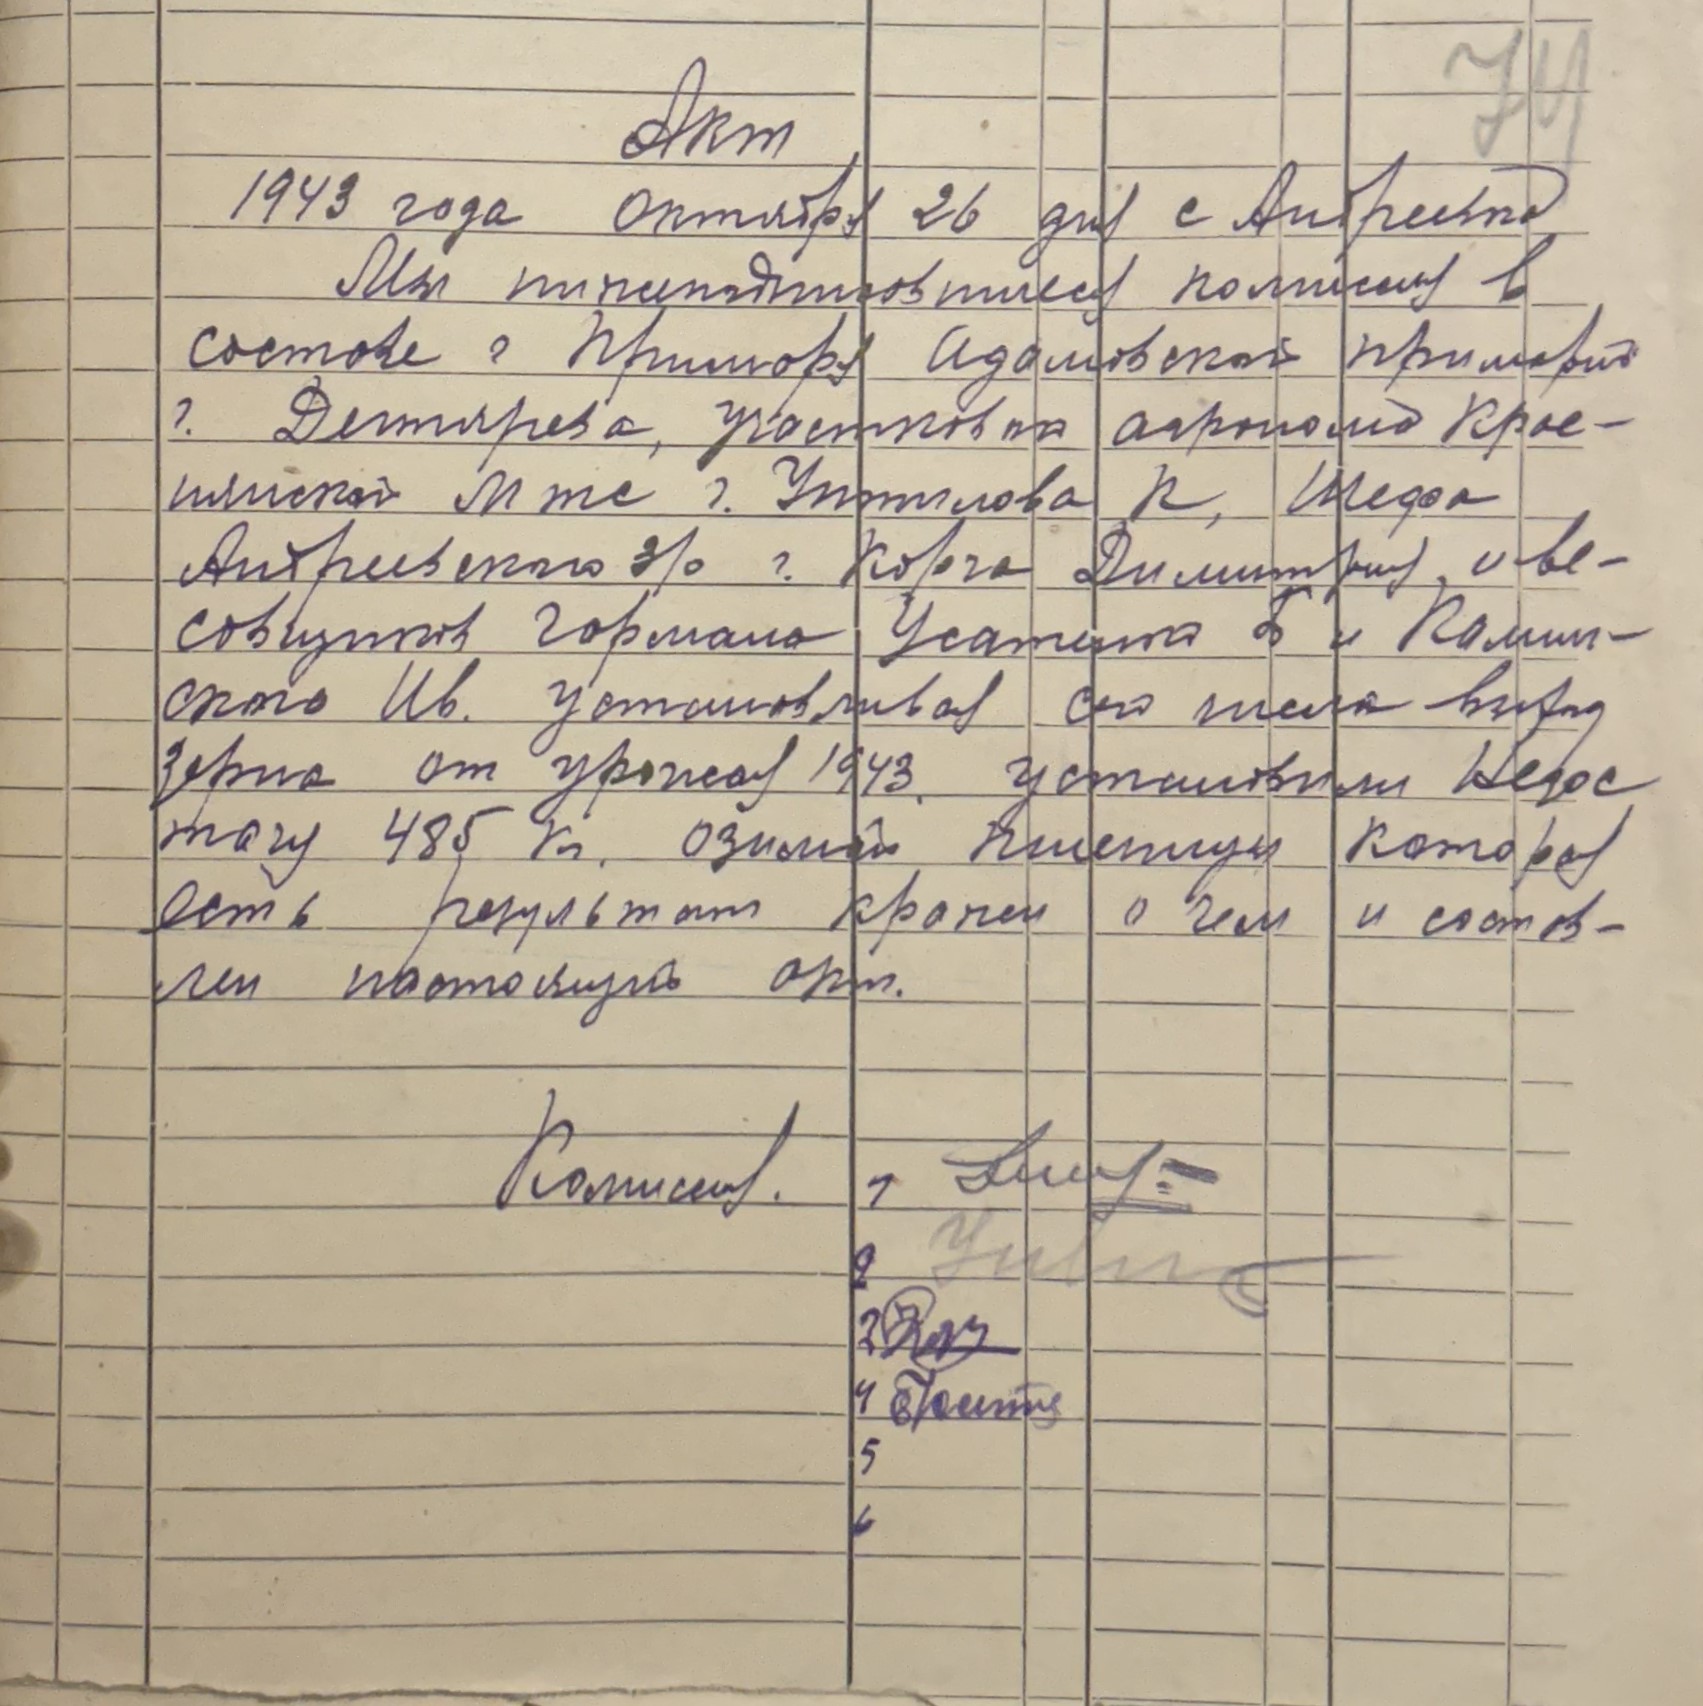 74
Акт
1943 года октября 26 дня с Андреевка
Мы нижеподписовшиеся комиссия в
состове г Примаря Адамовской примарии
г. Дегтярева, участковой агронома Крас-
нянской Мтс г. К, Шефа
Андреевского з/о г. Корча Димитрия, и ве-
совщиков Гормана Усатенка Б и Камин-
ского Ив. установливая сего числа
зерна от урожая 1943. установили Недос
тачу 485 кг. озимой пшеницы которая
есть результат кражи о чем и состов-
лен настоящий акт.
Комиссия. 1
2
3
4
5
6